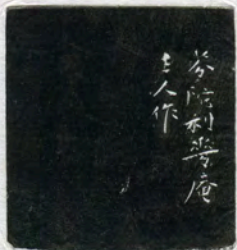 芬陀利灣庵
主人作